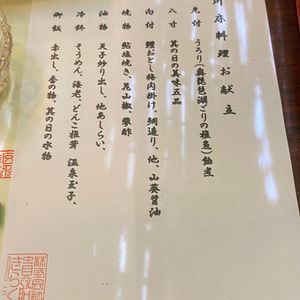 川床料理お献立
先付 うろり(奥琵琶湖ごりの稚魚)飴煮
八寸 其の日の美味五品
向付 鱧おとし梅肉掛け、鯛造り、他、山葵醤油
焼物 鮎塩焼き、昆山椒、蓼酢
油物 天子炒り出し、他あしらい、
冷鉢 そうめん、海老、どんこ椎茸 温泉玉子、
御飯 赤出し、香の物、其の日の水物